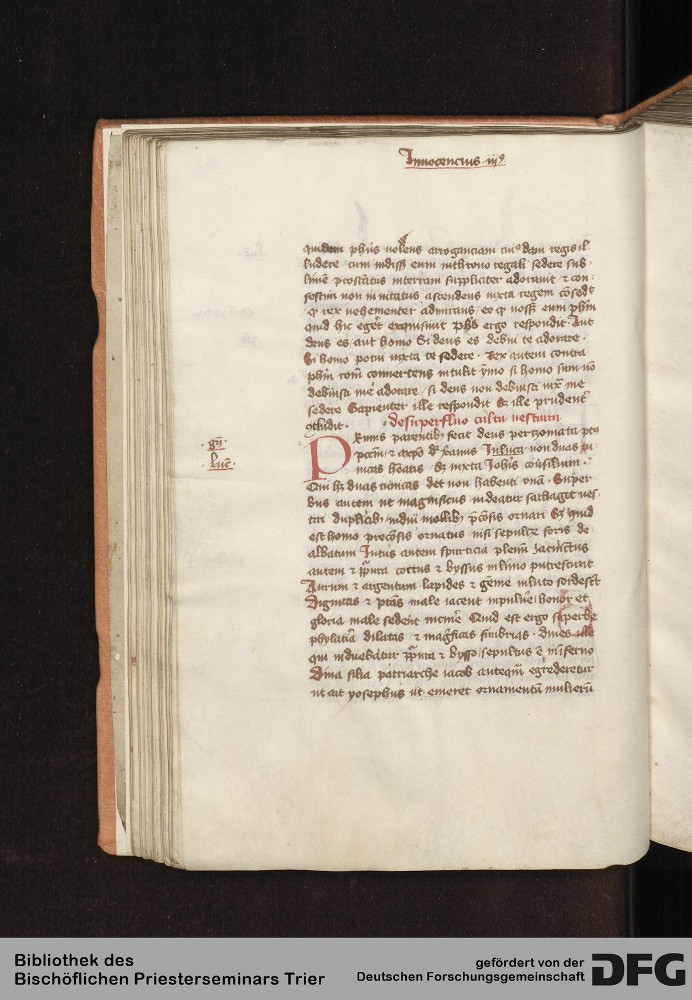 Innocencius iijꝰ
quidem phūs volens arroganciam cuiꝰdam regis il
ludere cum vidiss eum inthrono regali sedere sub
limē prostratus interram suppliciter adoravit ⁊ con
festim non invitatus ascendens iuxta regem
rex vehementer admirans eo qꝫ eum phm̄
quid hic exquisivit phūs ergo respondit Aut
deus es aut homo Si deus es debui te adorare
Si homo potui iuxta te sedere Rex autem contra
phm̄ convertens intulit ymo si homo sum nō
debuisti me adorare si deus non debuisti iuxͣ me
sedere Sapienter ille respondit sꝫ ille prudent̄
ꝯclusit de superfluo cultu vestium
·gn̄·
·luc̄·
Primis parentibꝫ fecit deus perizomata pꝰ
pccm̄ ⁊ a xpo dr̄ xanis In luca non duas tu
nicas heatis Sꝫ iuxta Johis consilium
Qui hꝫ duas tunicas det non habenti vnā Super
bus autem ut magnificus videatur sathagit ves
tiri duplicibꝫ indui mollibꝫ p̄cōsis ornari Sꝫ quid
est homo precōsis ornatus nisi sepulcꝝ foris de
albatum Intus autem spurticia plenū Jacinctus
autem ⁊ pp̄ura coctus ⁊ byssus in limo putrescunt
Aurum ⁊ argentum lapides ⁊ gēme in luto sordesc̄t
Dignitas ⁊ ptās male iacent in pulūe honor et
gloria male sedent in cinē Quid est ergo superbe
phylatīa dilatas ⁊ mag̃ficas fimbrias Dives ille
qui induebatur pp̄ura ⁊ bysso sepultus ē in inferno
Dina filia patriarche iacob anteqm̄ egrederetur
ut ait yosephus ut emeret ornamentū mulierū
Bibliothek des
Bischöflichen Priesterseminars Trier
gefördert von der
Deutschen Forschungsgemeinschaft
DFG